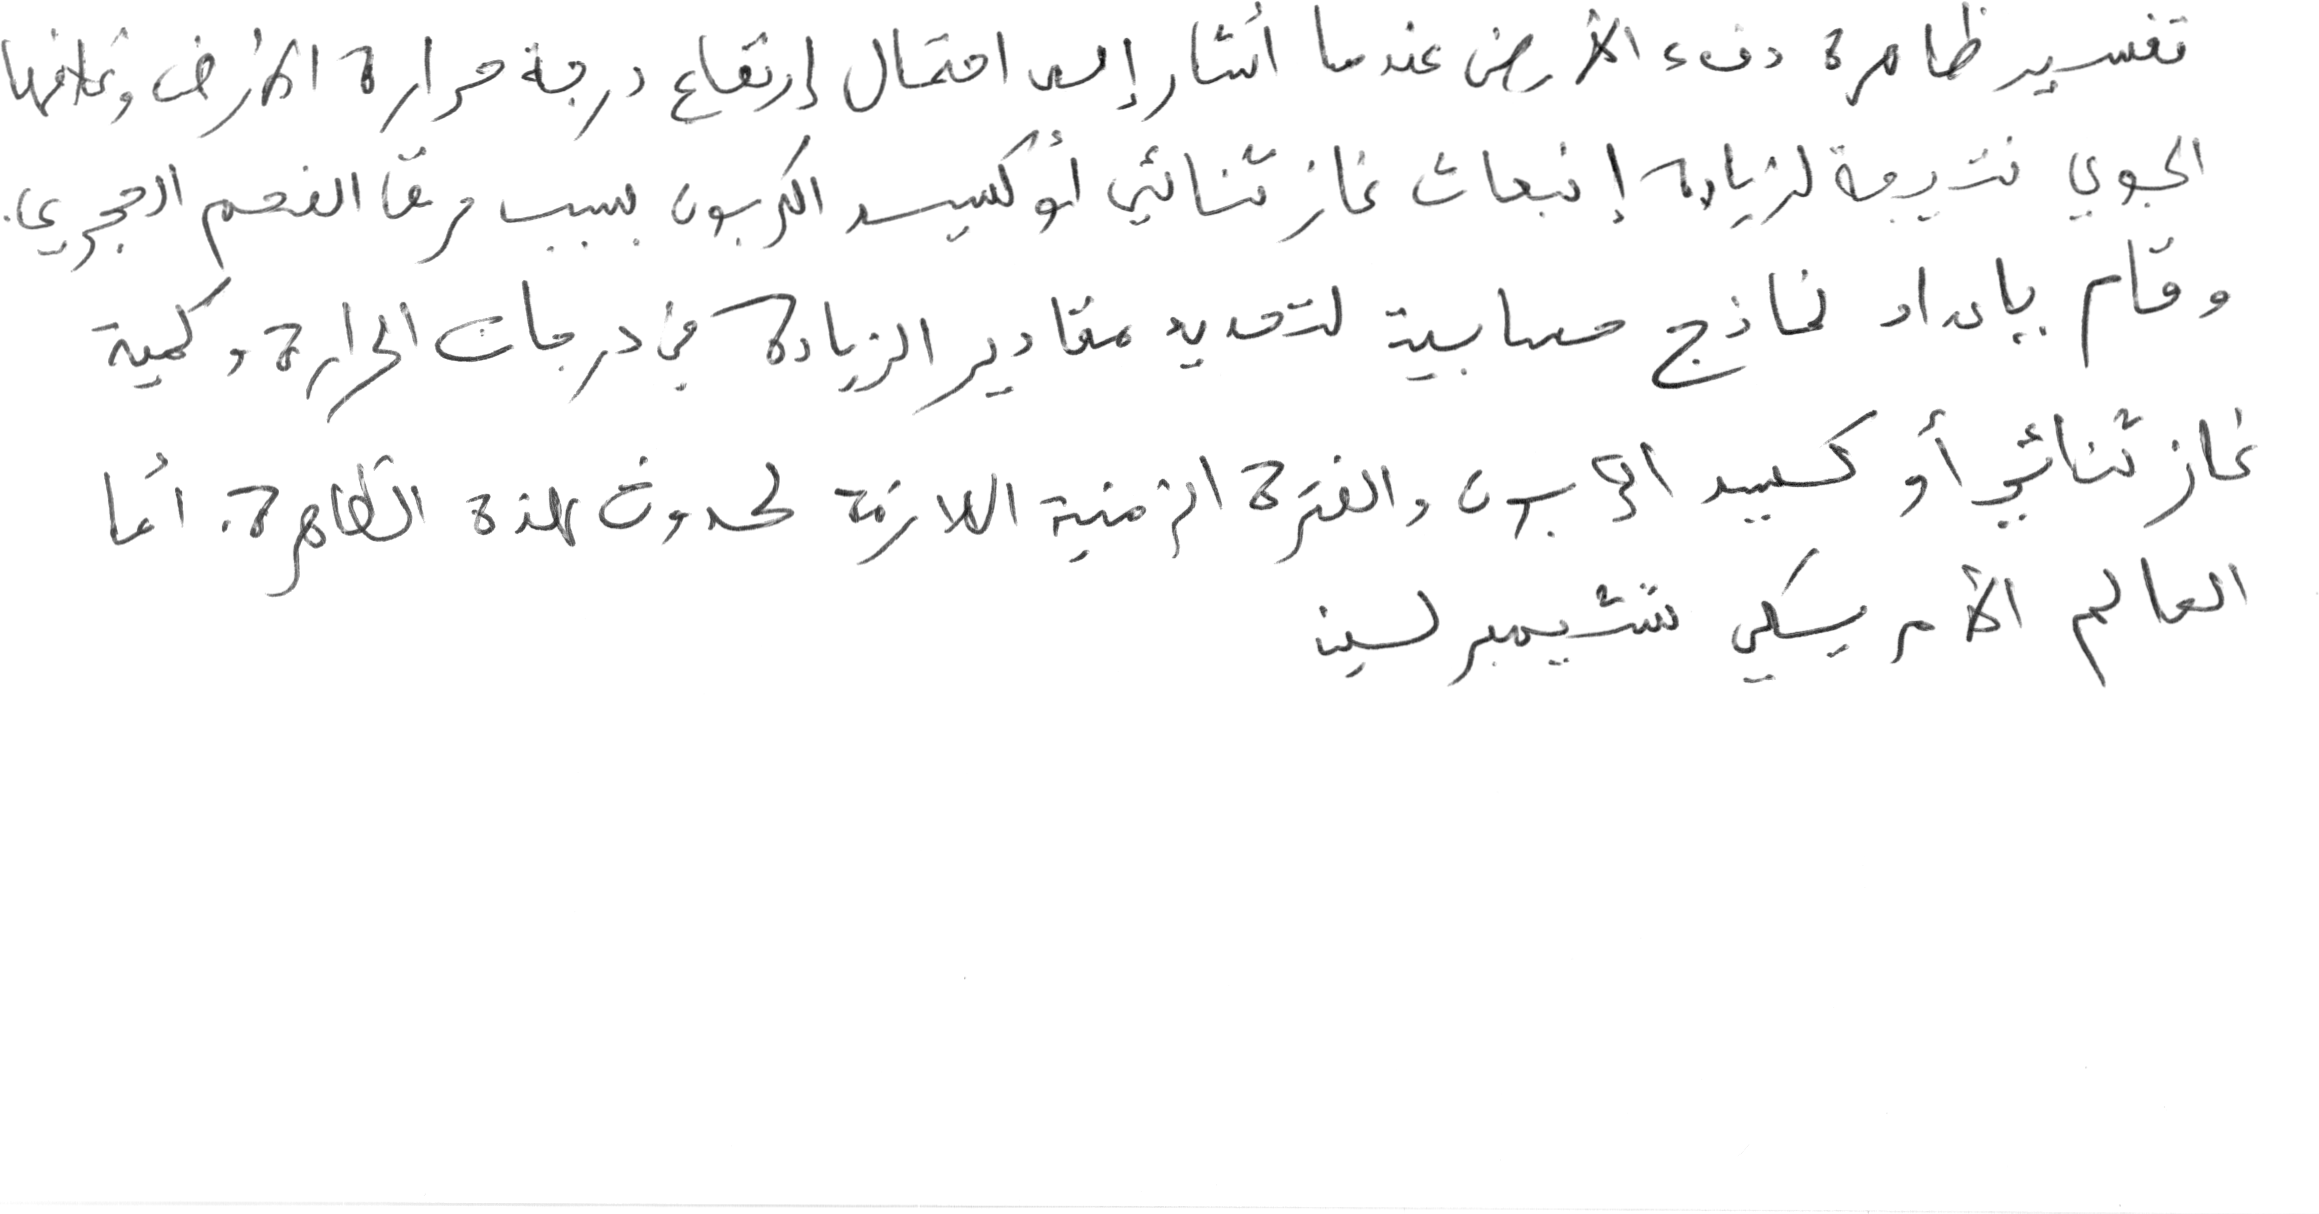 تفسير ظاهرة دفء الأرض عندما أشار إلى احتمال إرتفاع درجة حرارة الأرض وغلافها
الجوي نتيجة لزيادة إنبعاث غاز ثنائي أوكسيد الكربون بسبب حرق الفحم الحجري.
وقام بإعداد نماذج حسابية لتحديد مقادير الزيادة في درجات الحرارة وكمية
غاز ثنائي أوكسيد الكربون والفترة الزمنية اللازمة لحدوث هذه الظاهرة. أما
العالم الأمريكي تشيمبرلسين